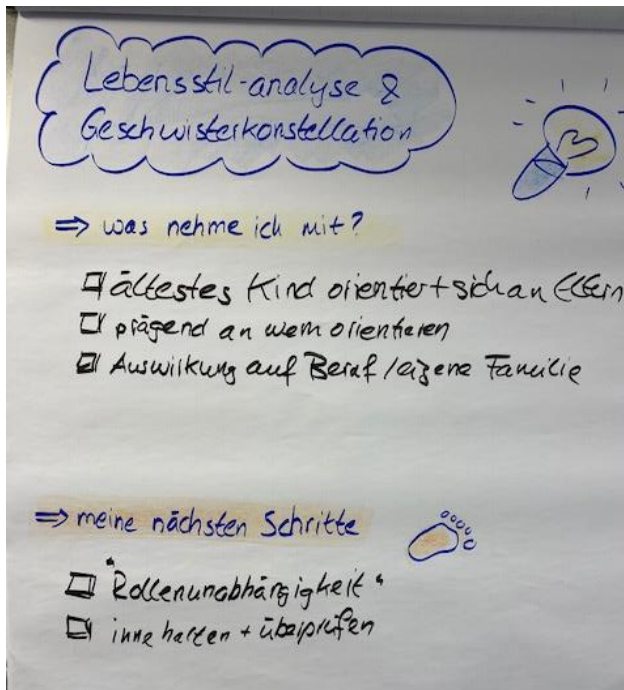 Lebensstil-analyse &
Geschwisterkonstellation
⇒ was nehme ich mit?
ältestes Kind orientiert sich an Eltern
prägend an wem orientieren
Auswirkung auf Beruf / eigene Familie
⇒ meine nächsten Schritte
"Rollenunabhängigkeit"
inne halten + überprüfen